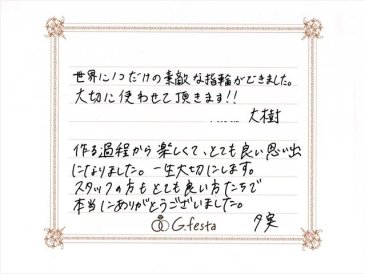 世界に1つだけの素敵な指輪ができました。
大切に使わせて頂きます!!
大樹
作る過程から楽しくて、とても良い思い出
になりました。一生大切にします。
スタッフの方もとても良い方たちで
本当にありがとうございました。
G.festa
夕実